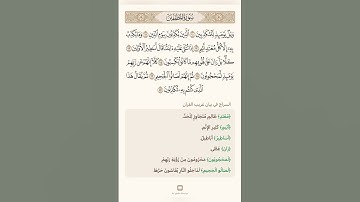 سُورَةُ المُطَفِّفِينَ
وَيْلٌ يَوْمَئِذٍ لِّلْمُكَذِّبِينَ ۝ ٱلَّذِينَ يُكَذِّبُونَ بِيَوْمِ ٱلدِّينِ ۝ وَمَا يُكَذِّبُ
بِهِۦٓ إِلَّا كُلُّ مُعْتَدٍ أَثِيمٍ ۝ إِذَا تُتْلَىٰ عَلَيْهِ ءَايَٰتُنَا قَالَ أَسَٰطِيرُ ٱلْأَوَّلِينَ ۝
كَلَّا ۖ بَلْ ۜ رَانَ عَلَىٰ قُلُوبِهِم مَّا كَانُوا۟ يَكْسِبُونَ ۝ كَلَّآ إِنَّهُمْ عَن رَّبِّهِمْ
يَوْمَئِذٍ لَّمَحْجُوبُونَ ۝ ثُمَّ إِنَّهُمْ لَصَالُوا۟ ٱلْجَحِيمِ ۝ ثُمَّ يُقَالُ هَٰذَا
ٱلَّذِى كُنتُم بِهِۦ تُكَذِّبُونَ ۝
السراج في بيان غريب القرآن
﴿مُعْتَدٍ﴾ ظَالِمٍ مُتَجَاوِزٍ لِلْحَدِّ.
﴿أَثِيمٍ﴾ كَثِيرِ الإِثْمِ.
﴿أَسَاطِيرُ﴾ أَبَاطِيلُ.
﴿رَانَ﴾ غَطَّى.
﴿لَمَحْجُوبُونَ﴾ مَحْرُومُونَ مِنْ رُؤْيَةِ رَبِّهِمْ.
﴿لَصَالُو الْجَحِيمِ﴾ لَدَاخِلُو النَّارِ يُقَاسُونَ حَرَّهَا.